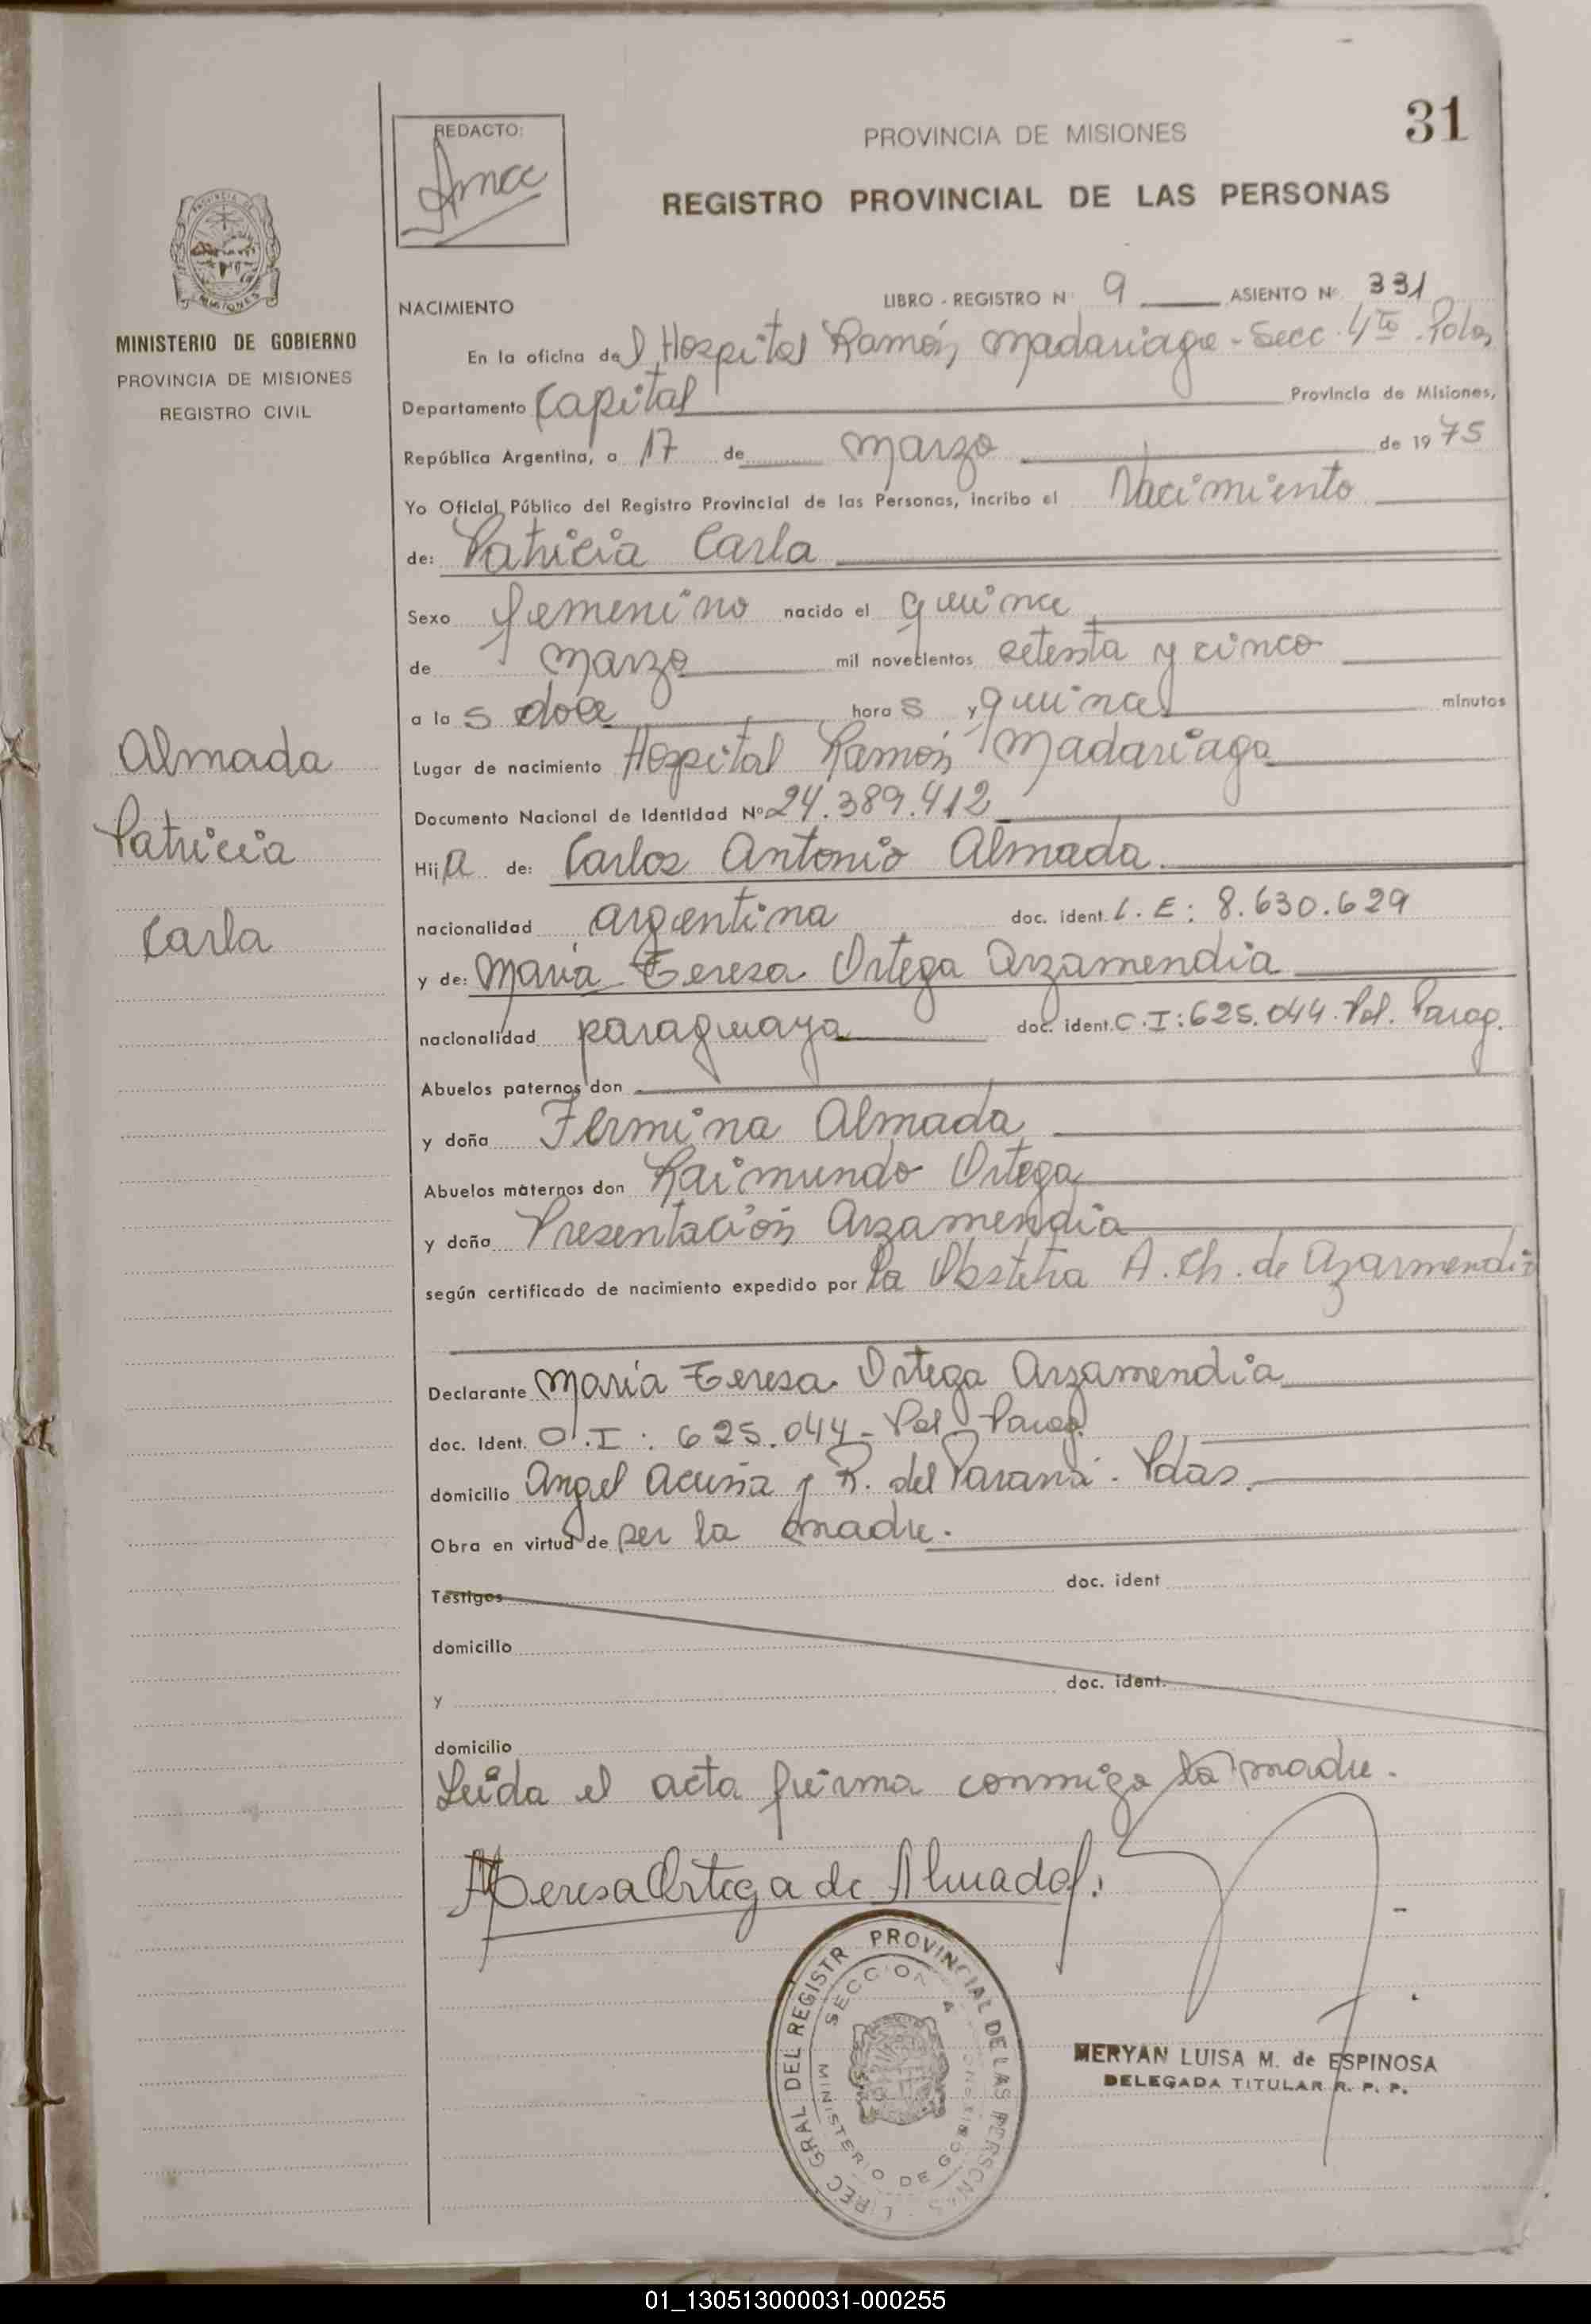 31
REDACTO:
PROVINCIA DE MISIONES
REGISTRO PROVINCIAL DE LAS PERSONAS
MINISTERIO DE GOBIERNO
PROVINCIA DE MISIONES
REGISTRO CIVIL
NACIMIENTO
LIBRO - REGISTRO N° 9 ASIENTO N° 331
En la oficina del Hospital Ramón Madariaga - Secc. 4to. Pdas
Departamento Capital Provincia de Misiones,
República Argentina, a 17 de marzo de 1975
Yo Oficial Público del Registro Provincial de las Personas, incribo el Nacimiento
de: Patricia Carla
Sexo femenino nacido el quince
de marzo mil novecientos setenta y cinco
a las doce horas y quince minutos
Almada
Patricia
Carla
Lugar de nacimiento Hospital Ramón Madariaga
Documento Nacional de Identidad N° 24.389.412
Hija de: Carlos Antonio Almada
nacionalidad argentina doc. ident. L. E: 8.630.629
y de: María Teresa Ortega Arzamendia
nacionalidad paraguaya doc. ident. C.I: 625.044 Pol. Parag.
Abuelos paternos don
y doña Fermina Almada
Abuelos maternos don Raimundo Ortega
y doña Presentación Arzamendia
según certificado de nacimiento expedido por la Obstetra A. Ch. de Azarmendi
Declarante María Teresa Ortega Arzamendia
doc. Ident. C.I: 625.044 - Pol. Parag.
domicilio Angel Acuña y R. del Paraná - Pdas.
Obra en virtud de ser la madre.
Testigos doc. ident
domicilio
y doc. ident.
domicilio
Leida el acta firma conmigo la madre.
Teresa Ortega de Almada
GRAL DEL REGISTR PROVINCIAL DE LAS PERSONAS
SECCION 4
MINISTERIO DE GOBIERNO
MERYAN LUISA M. de ESPINOSA
DELEGADA TITULAR R. P. P.
01_130513000031-000255